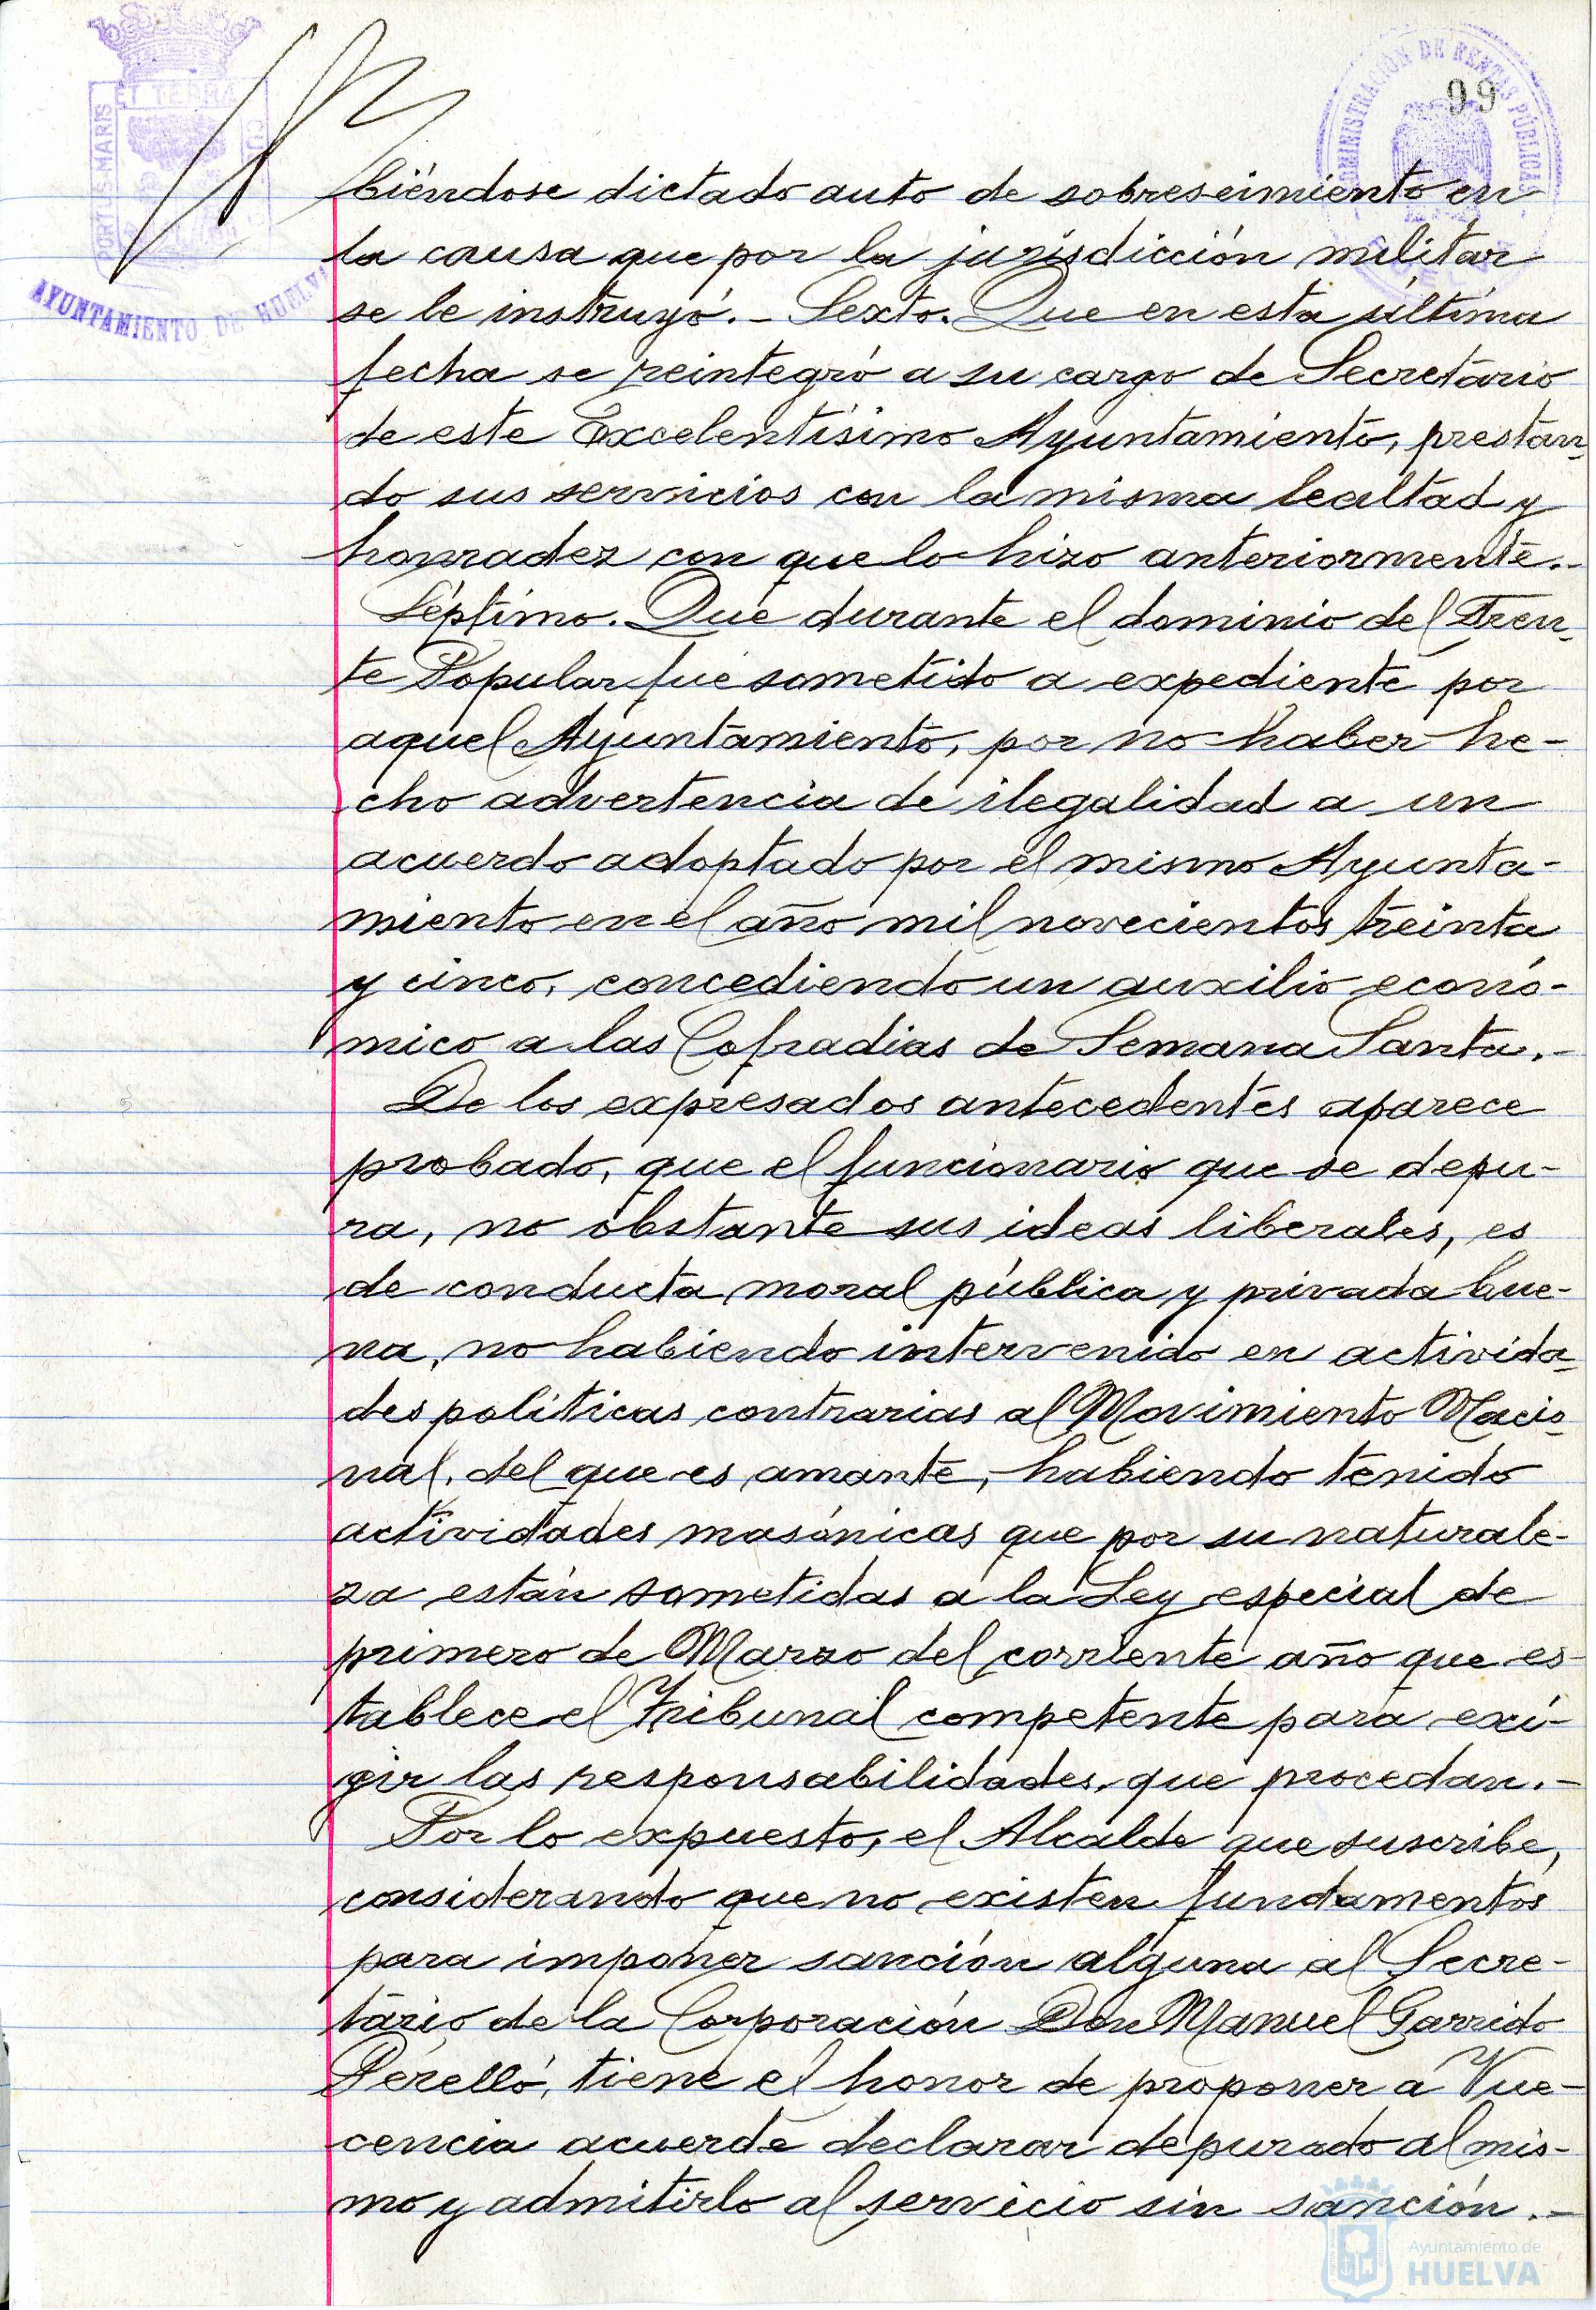 99
ET TERRA
PORTUS MARIS
AYUNTAMIENTO DE HUELVA
ADMINISTRACIÓN DE RENTAS PÚBLICAS
biéndose dictado auto de sobreseimiento en
la causa que por la jurisdicción militar
se le instruyó.- Sexto. Que en esta última
fecha se reintegró a su cargo de Secretario
de este Excelentísimo Ayuntamiento, prestan-
do sus servicios con la misma lealtad y
honradez con que lo hizo anteriormente.-
Séptimo. Que durante el dominio del Fren-
te Popular fue sometido a expediente por
aquel Ayuntamiento, por no haber he-
cho advertencia de ilegalidad a un
acuerdo adoptado por el mismo Ayunta-
miento en el año mil novecientos treinta
y cinco, concediendo un auxilio econó-
mico a las Cofradias de Semana Santa.-
De los expresados antecedentes aparece
probado, que el funcionario que se depu-
ra, no obstante sus ideas liberales, es
de conducta moral pública y privada bue-
na, no habiendo intervenido en activida-
des políticas contrarias al Movimiento Nacio-
nal, del que es amante, habiendo tenido
actividades masónicas que por su naturale-
za están sometidas a la Ley especial de
primero de Marzo del corriente año que es-
tablece el Tribunal competente para exi-
gir las responsabilidades, que procedan.-
Por lo expuesto, el Alcalde que suscribe,
considerando que no existen fundamentos
para imponer sanción alguna al Secre-
tario de la Corporación Don Manuel Garrido
Perelló, tiene el honor de proponer a Vue-
cencia acuerde declarar depurado al mis-
mo y admitirlo al servicio sin sanción.-
Ayuntamiento de
HUELVA